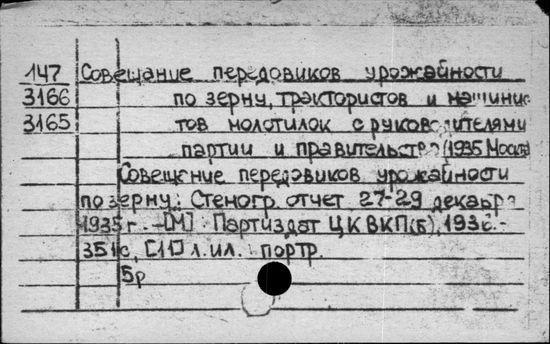 147 Совещание передовиков урожайности
3166 по зерну, трактористов и машинис
3165 тов молотилок с руководителями
партии и правительства (1935 Москва
Совещение передовиков урожайности
по зерну: Стеногр. отчет 27-29 декабр
1935 г. -[М] Партиздат ЦК ВКП(б), 1936.-
351 с, [1] л. ил. портр.
5р